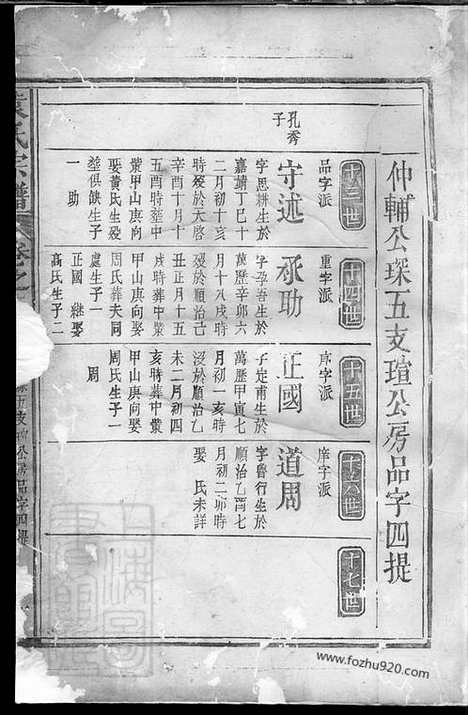 仲輔公琛五支瑄公房品字四提
十三世
品字派
孔秀
子
守述
字思耕生於
嘉靖丁巳十
二月初十亥
時歿於天啓
辛酉十月十
五酉時葬中
叢甲山庚向
娶黃氏生歿
塟俱缺生子
一 助
十四世
重字派
承助
字孕吾生於
萬歷辛卯六
月十八戌時
歿於順治己
丑正月十五
戌時葬中叢
甲山庚向娶
周氏葬夫同
處生子一
正國 繼娶
高氏生子二
十五世
序字派
正國
子定甫生於
萬歷甲寅七
月初一亥時
歿於順治乙
未二月初四
亥時葬中叢
甲山庚向娶
周氏生子一
周
十六世
庠字派
道周
字魯行生於
順治乙酉七
月初二卯時
娶 氏未詳
十七世
氏宗譜
卷之
五支瑄公房品字四提
www.fozhu920.com